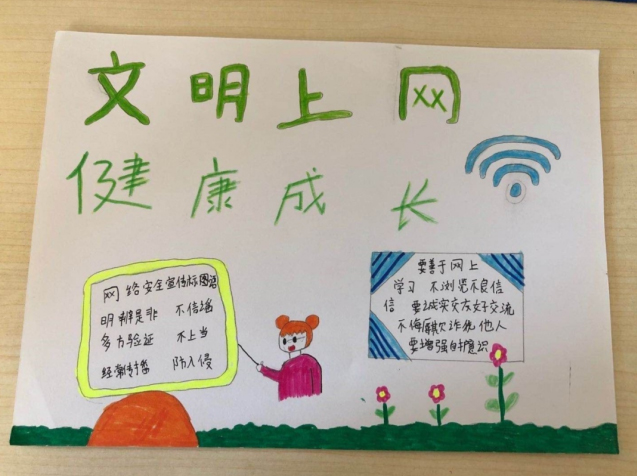 文明上网
健康成长
网络安全宣传标
明辨是非 不信谣
多方验证 不上当
经常 防入侵
要善于网上
学习 不浏览不良信
信 要诚实交友好交流
不侮欺诈他人
要增强自护意识